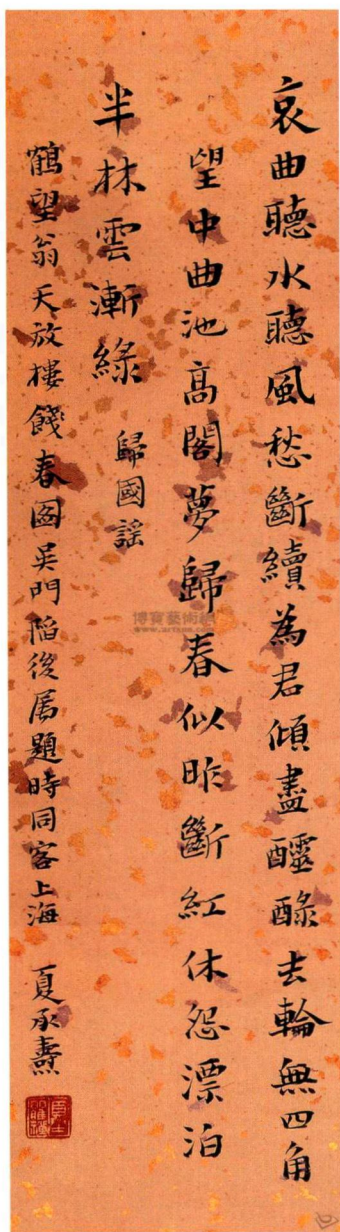 哀曲聽水聽風愁斷續為君傾盡醽醁去輪無四角
望中曲池高閣夢歸春似昨斷紅休怨漂泊
半林雲漸綠 歸國謠
鶴望翁天放樓餞春圖吴門陷後屬題時同客上海 夏承燾
博寶藝術網